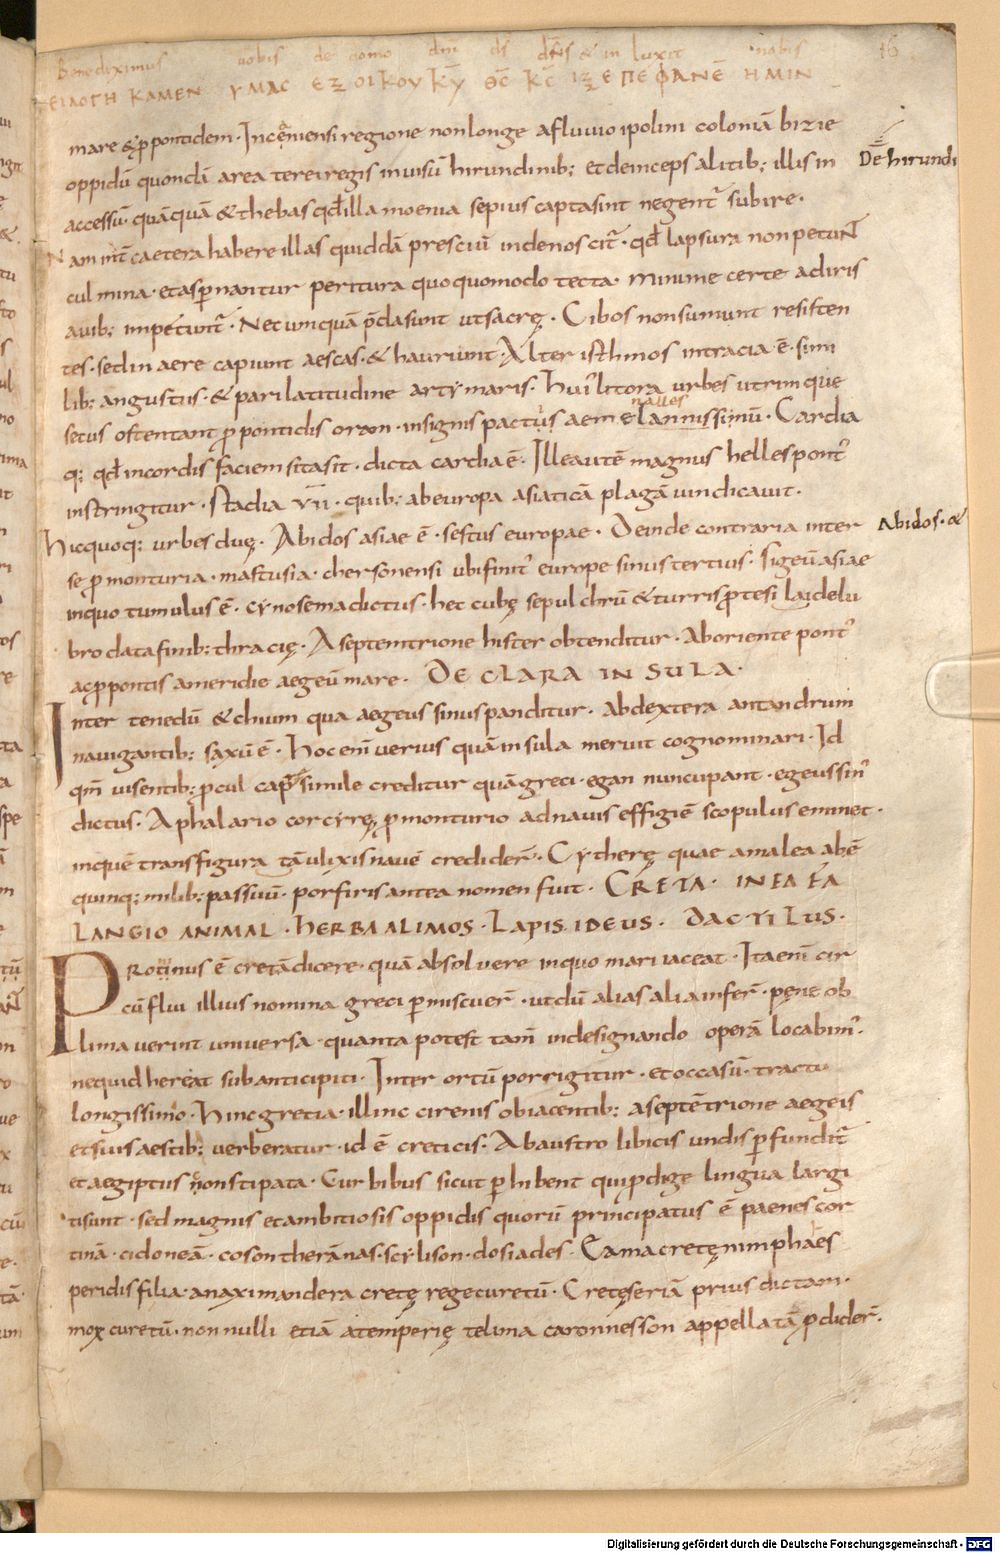 Benediximus uobis de domo dni ds dns & in luxit nobis
16
ΕΙΛΟΓΗ ΚΑΜΕΝ ΥΜΑС ΕΞ ΟΙΚΟΥ Κ̅Υ̅ Θ̅С̅ Κ̅С̅ ΙΞ ΕΠΕΦΑΝΕ̅ ΗΜΙΝ
mare & ꝓpontidem · Incęniensi regione non longe a fluuio ipolini coloniā bizie
oppidū quondā area terei regis inuisū hirundinib; et deinceps alitib; illis in
De hirundi
accessū · quāquā & thebas qđ illa moenia sepius capta sint negent᷑ subire ·
Nam int̄ caetera habere illas quiddā presciū inde noscit᷑ · qđ lapsura non petunt
culmina · et aspernantur peritura quoquomodo tecta · minime certe a diris
auib; impetunt᷑ · Nec umquā p̄da sunt ut sacrę · Cibos non sumunt resisten
tes · sed in aere capiunt aescas · & hauriunt · Alter isthmos in tracia ē · simi
lib; angustus · & pari latitudine arty maris · Hui' litora urbes utrimque
secus ostentant ꝓpontidis oram · insignis pactus aem & lannissimū · Cardia
nalles
q; qđ in cordis faciem sita sit · dicta cardia ē · Ille autē magnus hellespont'
instringitur · stadia VII · quib; ab europa asiaticā plagā uindicauit ·
Hic quoq; urbes duę · Abidos asiae ē · sestus europae · Deinde contraria inter
Abidos · &
se ꝓmonturia · mastusia · chersonensi ubi finit᷑ europe sinus tertius · sigeū asiae
in quo tumulus ē · cynosema dictus · hec cubę sepulchrū & turris ꝓtesilai delu
bro data finib; thracię · A septemtrione hister obtenditur · Ab oriente pont'
ac ꝓpontis a meridie aegeū mare · DE CLARA INSULA ·
Inter tenedū & chium qua aegeus sinus panditur · ab dextera antandrum
nauigantib; saxū ē · Hoc enī uerius quā insula meruit cognominari · Id
qm̄ uisentib; ꝓcul caprę simile creditur quā greci · egan nuncupant · egeus sin'
dictus · A phalario corcyrę ꝓmonturio ad nauis effigiē scopulus eminet ·
in quē transfigura tā ulixis nauē credider̄ · Cytherę quae a malea abē
quinq; milib; passuū · porfiris antea nomen fuit · CRETA · IN EA FA
LANGIO ANIMAL · HERBA ALIMOS · LAPIS IDEUS · DACTILUS ·
Protinus ē cretā dicere · quā absoluere in quo mari iaceat · Ita enī cir
cūflui illius nomina greci permiscuer̄ · ut dū alias alia infer̄ · pęne ob
limauerint uniuersa · quanta potest tam̄ in designando operā locabim' ·
ne quid hereat sub ancipiti · Inter ortū porrigitur · et occasū · tractu
longissimo · Hinc gretia · illinc cirenis obiacentib; a septētrione aegeis
et suis aestib; uerberatur · id ē creticis · Ab austro libicis undis perfundit᷑
et aegiptus non stipata · Cur bibus sicut perhibent qui ꝓdige lingua largi
ti sunt · sed magnis et ambitiosis oppidis quorū principatus ē paenes cor
tinā · cidoneā · coson therānas · scylison · dosiades · Eama cretę nimphaes
peridis filia · anaximandera cretę rege curetū · Cretęseriā prius dictam ·
mox curetū · non nulli etiā a temperię teluna caronnesson appellatā ꝓdider̄ ·
Digitalisierung gefördert durch die Deutsche Forschungsgemeinschaft - DFG